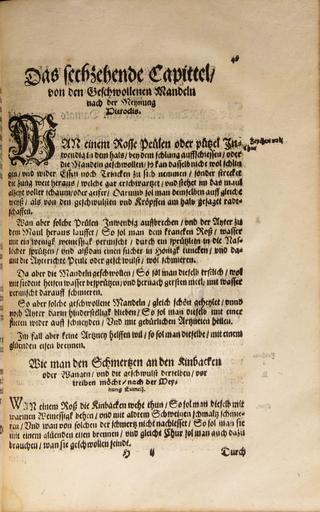 Das sechzehende Capittel/
von den Geschwollenen Mandeln
nach der Meynung
Hieroclis.
WAN einem Rosse Peülen oder pützel In-
wendig in dem hals/ bey dem schlung auffschiessen/ oder
die Mandeln geschwollen/ so kan dasselb nicht wol schlin-
gen/ und wider Essen noch Trincken zu sich nemmen/ sonder strecket
die zung weit heraus/ welche gar erschwartzet/ und stehet im das maul
alzeit voller schaum/ oder geifer/ Darumb sol man demselben auff gleiche
weiß/ als von den geschwulsten und Kröpffen am hals gesagt rath-
schaffen.
Wan aber solche Peülen Inwendig auffbrechen/ und der Ayter zu
dem Maul heraus lauffet/ So sol man dem francken Roß/ wasser
mit ein wenig weinessig vermischt/ durch ein sprützlein in die Naß-
löcher sprützen/ und alsdann einen sucher in Hönig tuncken/ und da-
mit die Ayterichte Peüle oder geschwulst/ wol schmieren.
Da aber die Mandeln geschwollen/ So sol man dieselb erstlich/ wol
mit siedent heissen wasser besprützen/ und hernach gersten meel/ mit wasser
vermischt darauff schmieren.
So aber solche geschwollene Mandeln/ gleich schon geheylet/ unnd
noch Ayter darin hinderstellig blieben/ So sol man dieselb mit einer
flieten wider auff schneyden/ Und mit gebürlichen Artzneyen heilen.
Im fall aber keine Artzney helffen wil/ so sol man dieselbe/ mit einem
glüenden eisen brennen.
Wie man den Schmertzen an den Kinbacken
oder Wangen/ und die geschwulst derselben/ ver
treiben möcht/ nach der Mey-
nung
WAN einem Roß die Kinbacken wehe thun/ So sol man dieselb mit
warmen Weinessig behen/ und mit altem Schweinen schmaltz schmie-
ren/ Und wan von solchen der schmertz nicht nachlesset/ So sol man sie
mit einem glüenden eisen brennen/ und gleiche Chur sol man auch dazu
brauchen/ wan sie geschwollen seindt.
H ij Durch